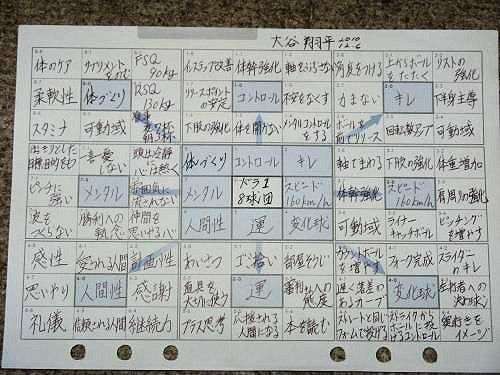 大谷 翔平 2010 12.6
体のケア
サプリメントをのむ
FSQ 90kg
インステップ改善
体幹強化
軸をぶらさない
角度をつける
上からボールをたたく
リストの強化
柔軟性
体づくり
RSQ 130kg
リリースポイントの安定
コントロール
不安をなくす
力まない
キレ
下半身主導
スタミナ
可動域
食事 夜7杯 朝3杯
下肢の強化
体を開かない
メンタルコントロールをする
ボールを前でリリース
回転数アップ
可動域
はっきりとした目標、目的をもつ
一喜一憂しない
頭は冷静に心は熱く
体づくり
コントロール
キレ
軸でまわる
下肢の強化
体重増加
ピンチに強い
メンタル
雰囲気に流されない
メンタル
ドラ1 8球団
スピード160km/h
体幹強化
スピード160km/h
肩周りの強化
波をつくらない
勝利への執念
仲間を思いやる心
人間性
運
変化球
可動域
ライナーキャッチボール
ピッチングを増やす
感性
愛される人間
計画性
あいさつ
ゴミ拾い
部屋そうじ
カウントボールを増やす
フォーク完成
スライダーのキレ
思いやり
人間性
感謝
道具を大切に使う
運
審判さんへの態度
遅く落差のあるカーブ
変化球
左打者への決め球
礼儀
信頼される人間
継続力
プラス思考
応援される人間になる
本を読む
ストレートと同じフォームで投げる
ストライクからボールに投げるコントロール
奥行きをイメージ